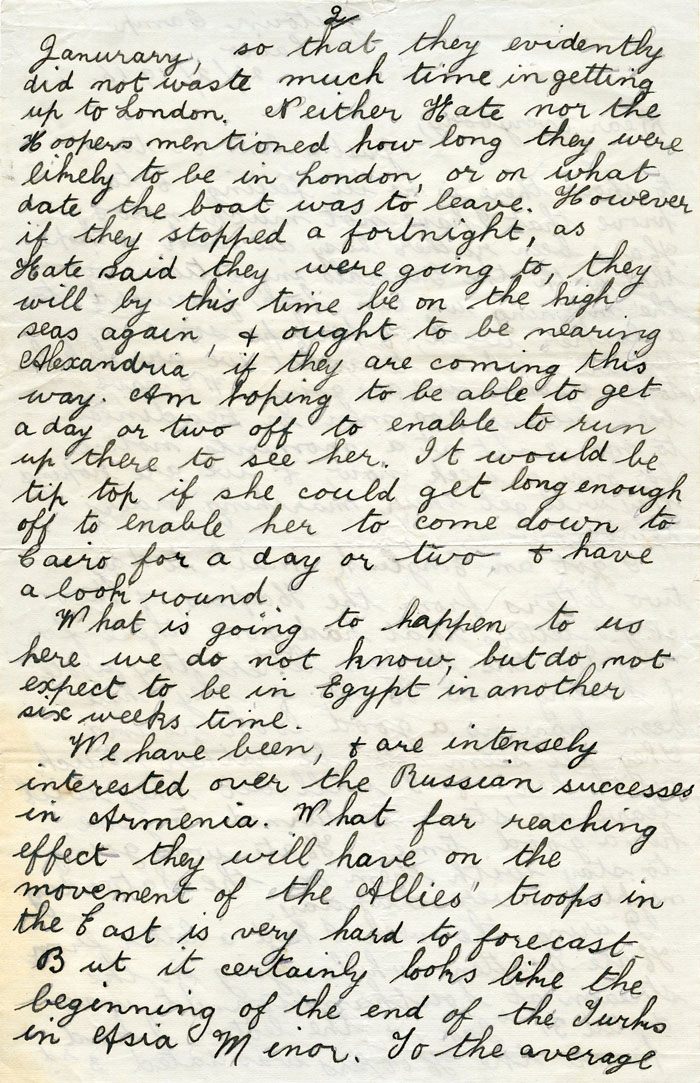 2
Janurary, so that they evidently
did not waste much time in getting
up to London. Neither Kate nor the
Hoopers mentioned how long they were
likely to be in London, or on what
date the boat was to leave. However
if they stopped a fortnight, as
Kate said they were going to, they
will by this time be on the high
seas again, & ought to be nearing
Alexandria if they are coming this
way. Am hoping to be able to get
a day or two off to enable to run
up there to see her. It would be
tip top if she could get long enough
off to enable her to come down to
Cairo for a day or two & have
a look round.
What is going to happen to us
here we do not know, but do not
expect to be in Egypt in another
six weeks time.
We have been, & are intensely
interested over the Russian successes
in Armenia. What far reaching
effect they will have on the
movement of the Allies' troops in
the East is very hard to forecast
But it certainly looks like the
beginning of the end of the Turks
in Asia Minor. To the average